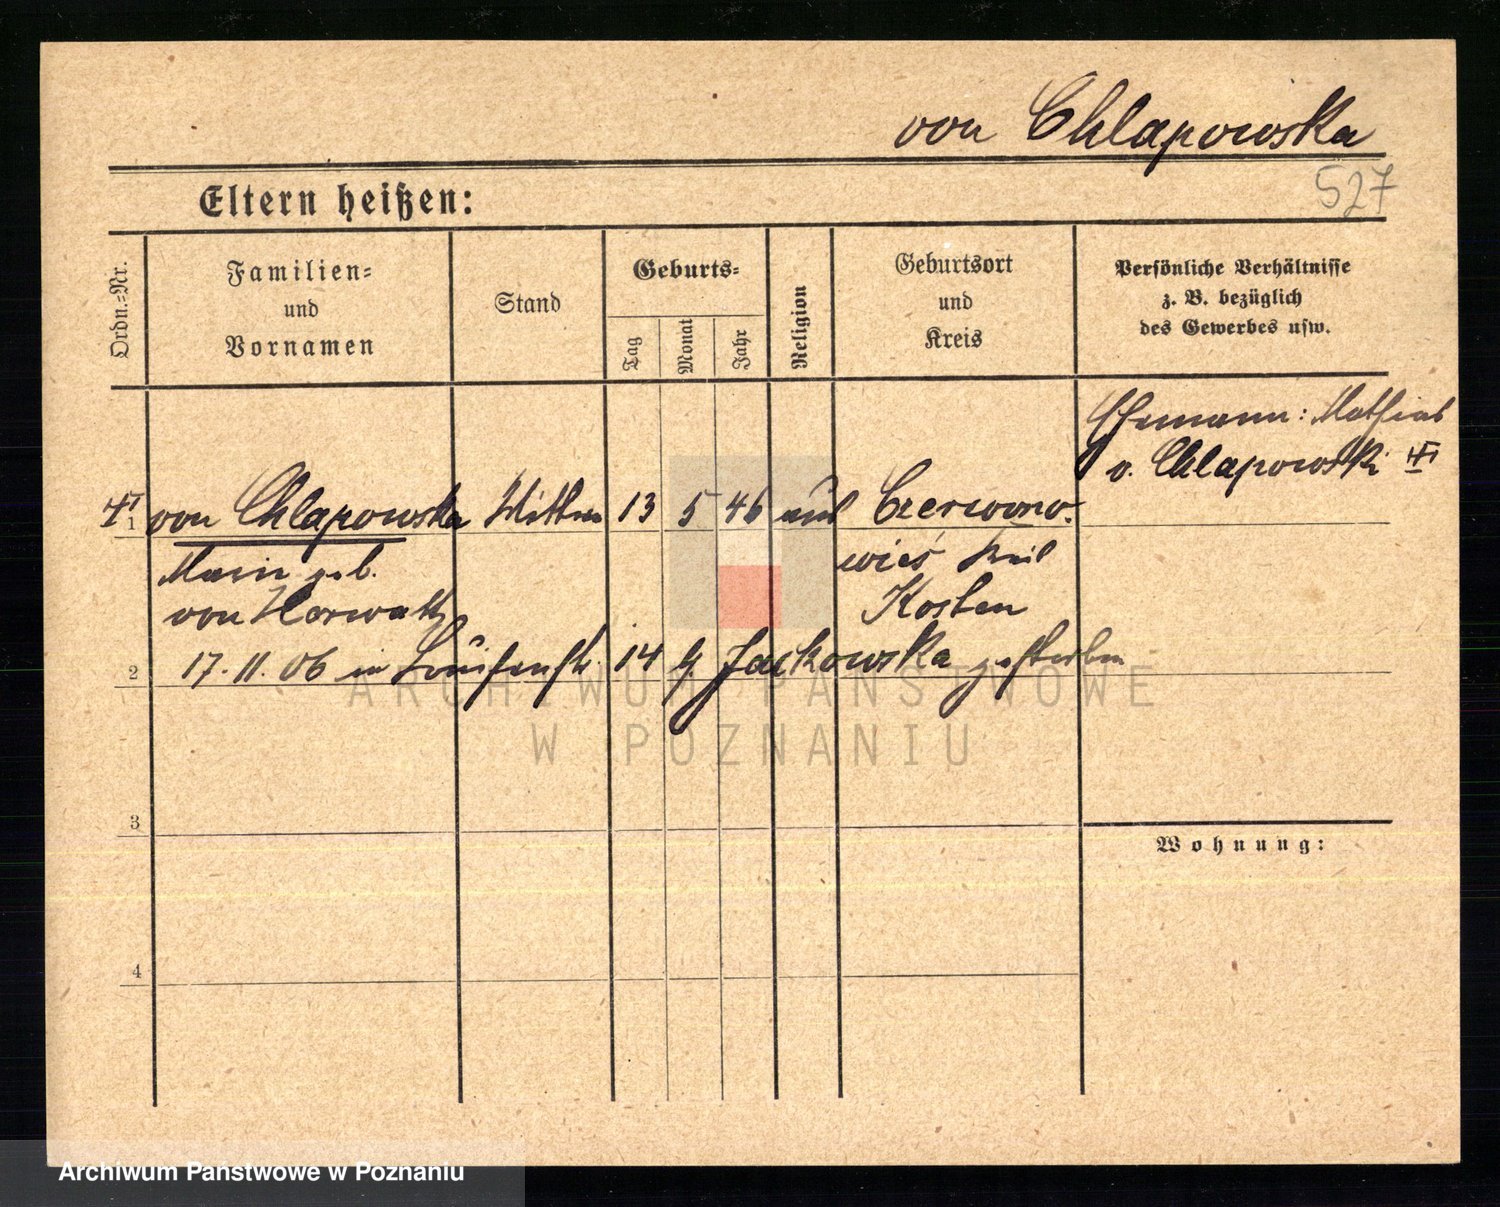 von Chlapowska
527
Eltern heißen:
Ordn.=Nr.
Familien=
und
Vornamen
Stand
Geburts=
Tag
Monat
Jahr
Religion
Geburtsort
und
Kreis
Persönliche Verhältnisse
z. B. bezüglich
des Gewerbes usw.
Ehemann: Mathias
v. Chlapowski
1 von Chlapowska Wittwe 13 5 46 Czerwono-
geb. wieś Kreis
von Horwath Kosten
2 17. 11. 06 in Louisenstr. 14 Jackowska gestorben
3
Wohnung:
4
ARCHIWUM PAŃSTWOWE
W POZNANIU
Archiwum Państwowe w Poznaniu